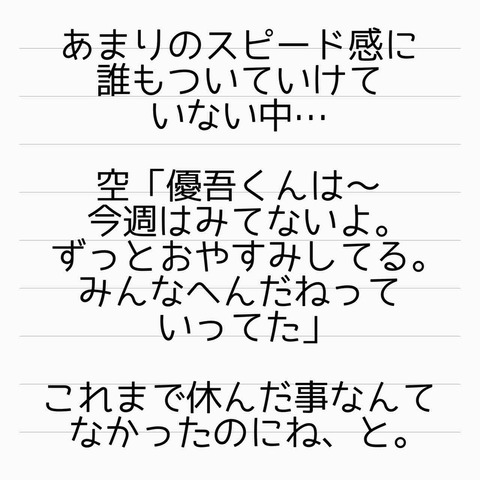 あまりのスピード感に
誰もついていけて
いない中…
空「優吾くんは〜
今週はみてないよ。
ずっとおやすみしてる。
みんなへんだねって
いってた」
これまで休んだ事なんて
なかったのにね、と。